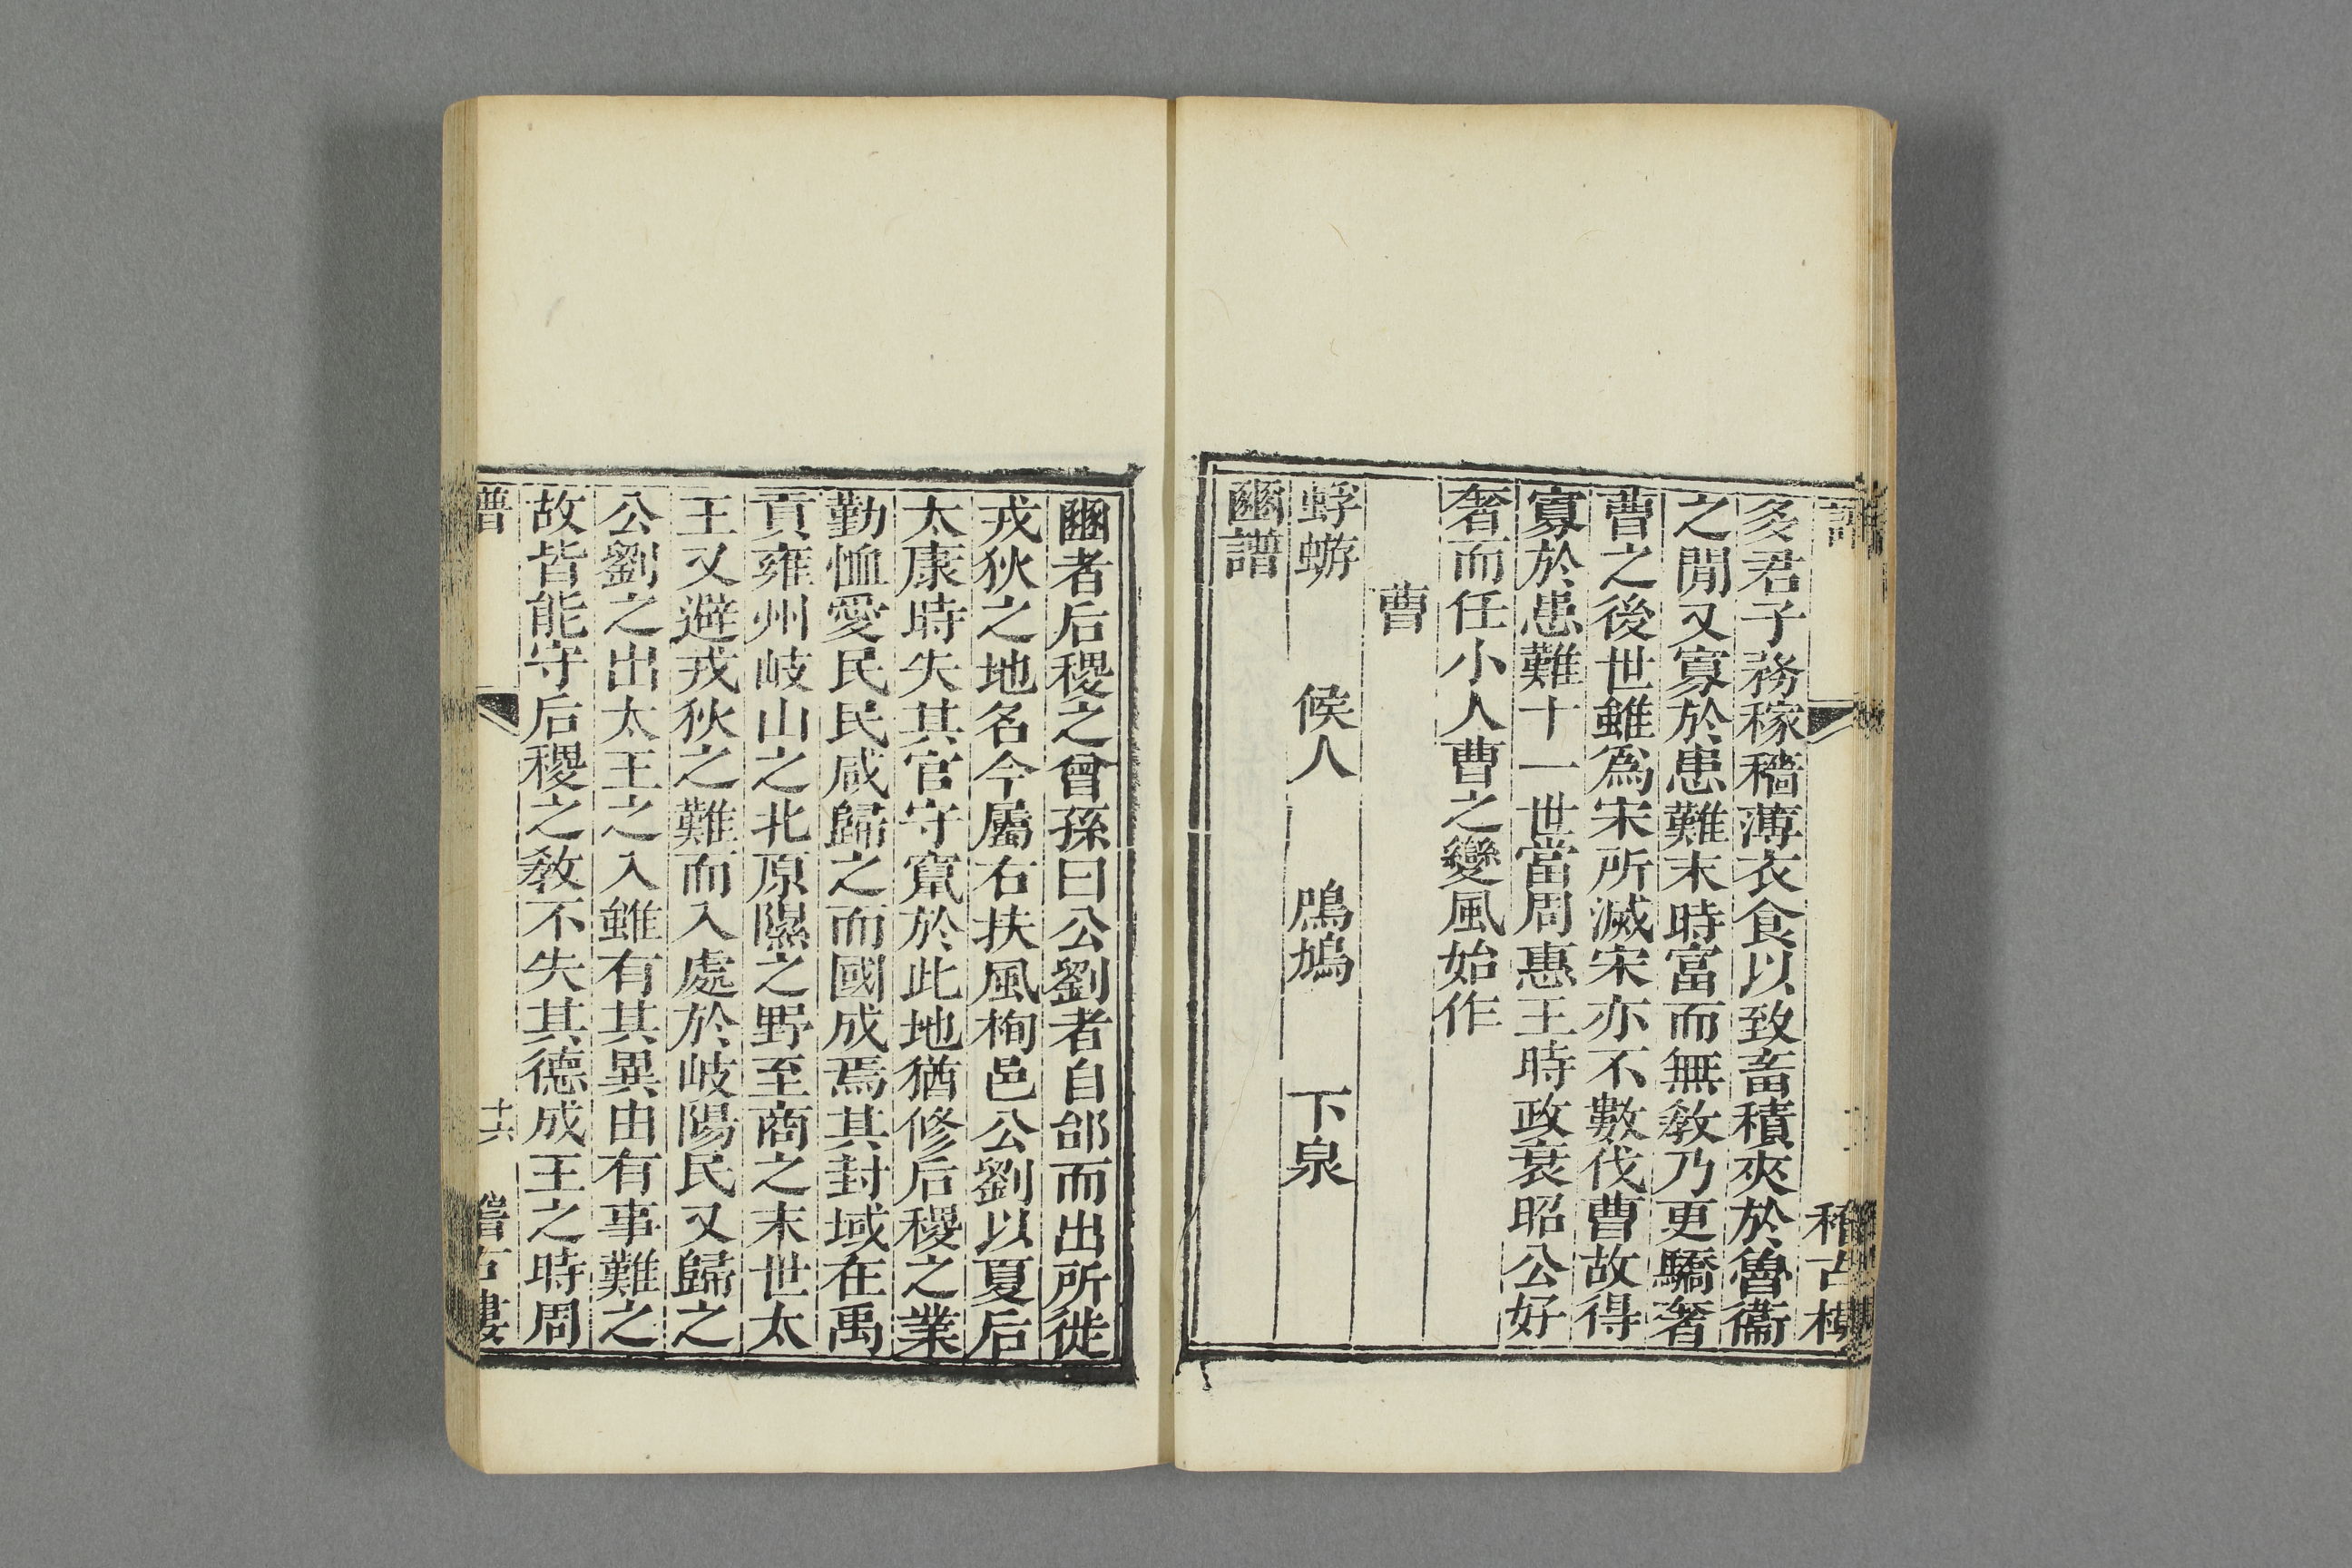 譜
稽古樓
多君子務稼穡薄衣食以致畜積夾於魯衞
之閒又寡於患難末時富而無教乃更驕奢
曹之後世雖為宋所滅宋亦不數伐曹故得
寡於患難十一世當周惠王時政衰昭公好
奢而任小人曹之變風始作
曹
蜉蝣 候人 鳲鳩 下泉
豳譜
豳者后稷之曾孫曰公劉者自邰而出所徙
戎狄之地名今屬右扶風栒邑公劉以夏后
太康時失其官守竄於此地猶修后稷之業
勤恤愛民民咸歸之而國成焉其封域在禹
貢雍州岐山之北原隰之野至商之末世太
王又避戎狄之難而入處於岐陽民又歸之
公劉之出太王之入雖有其異由有事難之
故皆能守后稷之教不失其德成王之時周
譜
十六
稽古樓